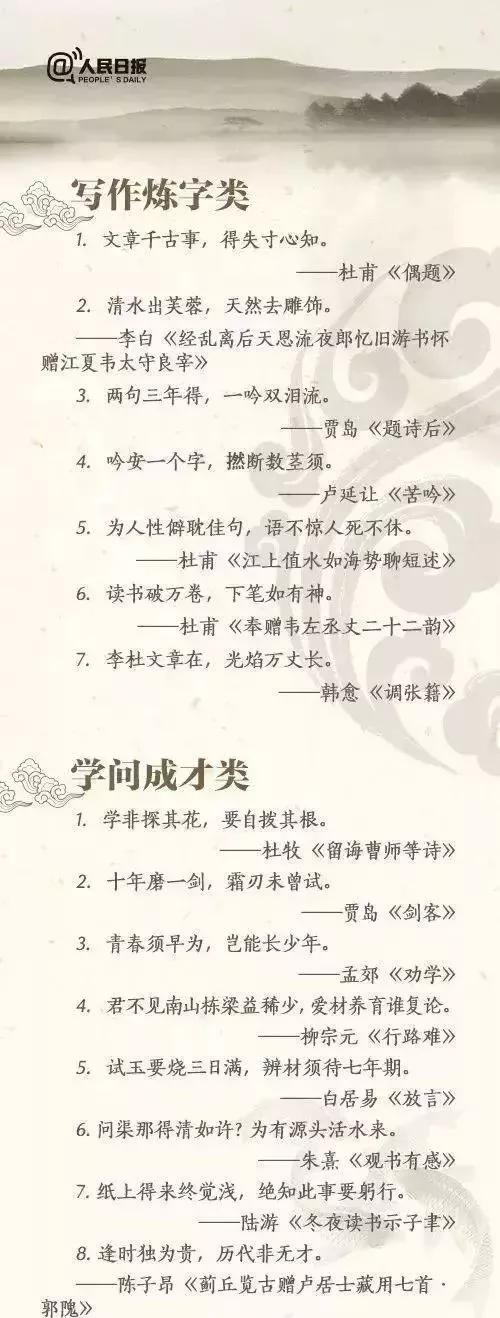 @人民日报
PEOPLE'S DAILY
写作炼字类
1. 文章千古事，得失寸心知。
——杜甫《偶题》
2. 清水出芙蓉，天然去雕饰。
——李白《经乱离后天恩流夜郎忆旧游书怀
赠江夏韦太守良宰》
3. 两句三年得，一吟双泪流。
——贾岛《题诗后》
4. 吟安一个字，撚断数茎须。
——卢延让《苦吟》
5. 为人性僻耽佳句，语不惊人死不休。
——杜甫《江上值水如海势聊短述》
6. 读书破万卷，下笔如有神。
——杜甫《奉赠韦左丞丈二十二韵》
7. 李杜文章在，光焰万丈长。
——韩愈《调张籍》
学问成才类
1. 学非探其花，要自拨其根。
——杜牧《留诲曹师等诗》
2. 十年磨一剑，霜刃未曾试。
——贾岛《剑客》
3. 青春须早为，岂能长少年。
——孟郊《劝学》
4. 君不见南山栋梁益稀少，爱材养育谁复论。
——柳宗元《行路难》
5. 试玉要烧三日满，辨材须待七年期。
——白居易《放言》
6. 问渠那得清如许? 为有源头活水来。
——朱熹《观书有感》
7. 纸上得来终觉浅，绝知此事要躬行。
——陆游《冬夜读书示子聿》
8. 逢时独为贵，历代非无才。
——陈子昂《蓟丘览古赠卢居士藏用七首·
郭隗》